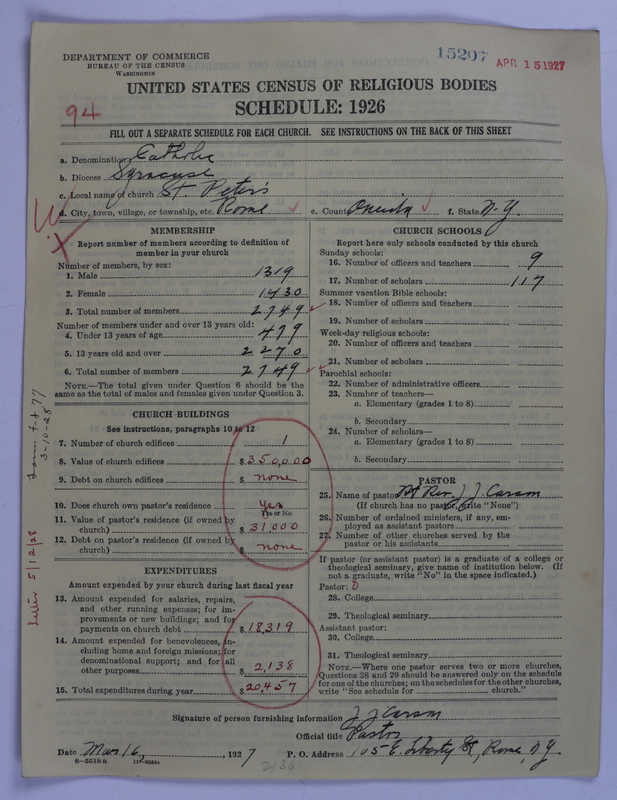 15207 APR 15 1927
DEPARTMENT OF COMMERCE
BUREAU OF THE CENSUS
WASHINGTON
UNITED STATES CENSUS OF RELIGIOUS BODIES
SCHEDULE: 1926
94
FILL OUT A SEPARATE SCHEDULE FOR EACH CHURCH. SEE INSTRUCTIONS ON THE BACK OF THIS SHEET
a. Denomination Catholic
b. Diocese Syracuse
c. Local name of church St. Peter's
d. City, town, village, or township, etc. Rome e. County Oneida f. State N.Y.
MEMBERSHIP
Report number of members according to definition of
member in your church
Number of members, by sex:
1. Male 1319
2. Female 1430
3. Total number of members 2749
Number of members under and over 13 years old:
4. Under 13 years of age 479
5. 13 years old and over 2270
6. Total number of members 2749
NOTE.—The total given under Question 6 should be the
same as the total of males and females given under Question 3.
CHURCH BUILDINGS
See instructions, paragraphs 10 to 12
7. Number of church edifices 1
8. Value of church edifices $350,000
9. Debt on church edifices $ none
10. Does church own pastor's residence Yes
Yes or No
11. Value of pastor's residence (if owned by
church) $31,000
12. Debt on pastor's residence (if owned by
church) $ none
EXPENDITURES
Amount expended by your church during last fiscal year
13. Amount expended for salaries, repairs,
and other running expenses; for im-
provements or new buildings; and for
payments on church debt $18,319
14. Amount expended for benevolences, in-
cluding home and foreign missions; for
denominational support; and for all
other purposes $2,138
15. Total expenditures during year $20,457
CHURCH SCHOOLS
Report here only schools conducted by this church
Sunday schools:
16. Number of officers and teachers 9
17. Number of scholars 117
Summer vacation Bible schools:
18. Number of officers and teachers
19. Number of scholars
Week-day religious schools:
20. Number of officers and teachers
21. Number of scholars
Parochial schools:
22. Number of administrative officers
23. Number of teachers—
a. Elementary (grades 1 to 8)
b. Secondary
24. Number of scholars—
a. Elementary (grades 1 to 8)
b. Secondary
PASTOR
25. Name of pastor Rt Rev. J J. Carson
(If church has no pastor, write "None")
26. Number of ordained ministers, if any, em-
ployed as assistant pastors
27. Number of other churches served by the
pastor or his assistants
If pastor (or assistant pastor) is a graduate of a college or
theological seminary, give name of institution below. (If
not a graduate, write "No" in the space indicated.)
Pastor: 0
28. College
29. Theological seminary
Assistant pastor:
30. College
31. Theological seminary
NOTE.—Where one pastor serves two or more churches,
Questions 28 and 29 should be answered only on the schedule
for one of the churches; on the schedules for the other churches,
write "See schedule for church."
Signature of person furnishing information J J Carson
Official title Pastor
Date Mar 16, 1927 P. O. Address 105 E. Liberty St, Rome, N.Y.
8—5518a
2130
3-10-28
Letter 5/12/28